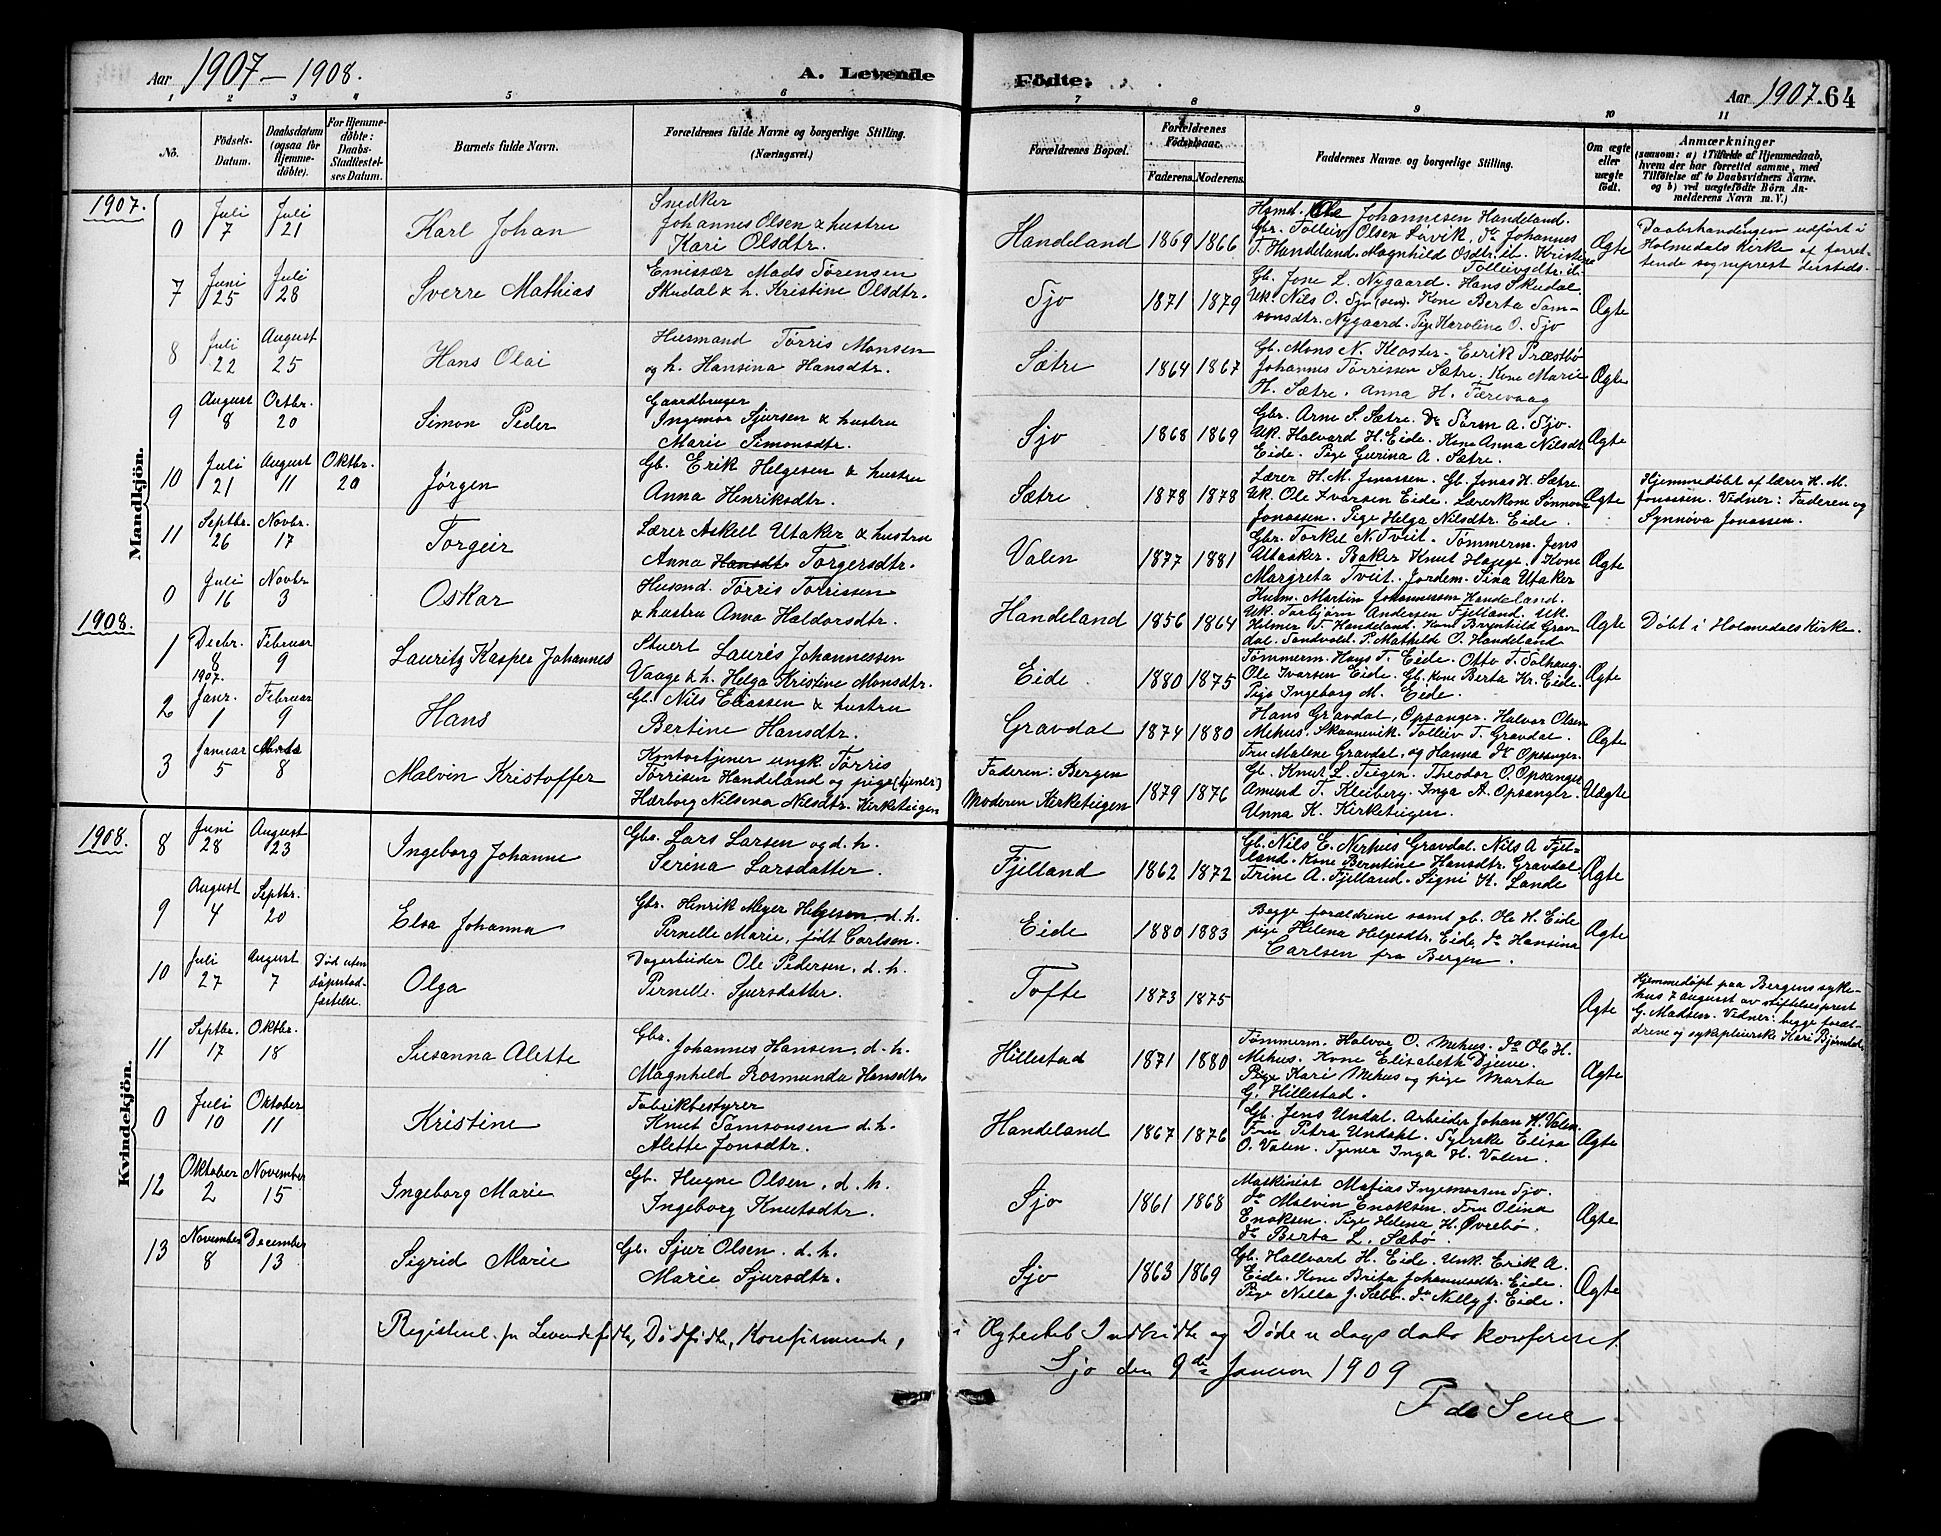 Aar 1907 – 1908.
A. Levende
Födte:
Aar 1907. 64
1 2 3 4 5 6 7 8 9 10 11
Nö.
Födsels-
Datum.
Daabsdatum
(ogsaa for
Hjemme-
döbte).
For Hjemme-
döbte:
Daabs-
Stadfæstel-
ses Datum.
Barnets fulde Navn.
Forældrenes fulde Navne og borgerlige Stilling.
(Næringsvei.)
Forældrenes Bopæl.
Forældrenes
Födselsaar.
Faderens. Moderens.
Faddernes Navne og borgerlige Stilling.
Om ægte
eller
uægte
födt.
Anmærkninger
(saasom: a) i Tilfælde af Hjemmedaab,
hvem der har forrettet samme, med
Tilföielse af to Daabsvidners Navne.
og b) ved uægtefödte Börn An-
melderens Navn m. V.)
Mandkjön.
1907.
0 Juli 7 Juli 21 Karl Johan
Snedker
Johannes Olsen & hustru
Kari Olsdtr.
Handeland 1869 1866
Hsmd. Ole Johannesen Handeland.
Gbr. Tolleiv Olsen Sørvik, do Johannes
T. Handeland. Magnhild Osdtr. ib. Kristine
Tolleivsdtr. ib.
Ægte
Daabshandlingen udført i
Holmedals Kirke af forret-
tende sogneprest dersteds.
7 Juni 25 Juli 28 Sverre Mathias
Emissær Mads Sørensen
Skudal & h. Kristine Olsdtr.
Sjo 1871 1879
Gb. Jone L. Nygaard. Hans Skudal
Uk. Nils O. Sjo (sen). Kone Berta Sam-
sonsdtr. Nygaard. Pige Karoline O. Sjo
Ægte
8 Juli 22 August 25 Hans Olai
Husmand Tørris Monsen
og h. Hansina Hansdtr.
Sætre 1864 1867
Gb. Mons N. Kloster. Eerik Præstbø
Johannes Tørrissen Sætre. Kone Marie
H. Sætre. Anna H. Færevaag
Ægte
9 August 8 Octbr. 20 Simon Peder
Gaardbruger
Ingemor Sjursen & hustru
Marie Simonsdtr.
Sjo 1868 1869
Gbr. Arne S. Sætre. Do Sørm A. Sjo.
Uk. Halvard H. Eide. Kone Anna Nilsdt
Eide. Pige Gurina A. Sætre.
Ægte
10 Juli 21 August 11 Oktbr. 20 Jørgen
Gb. Erik Helgesen & hustru
Anna Henriksdtr.
Sætre 1878 1878
Lærer H. M. Jonassen. Gb. Jonas H. Sætre.
Uk. Ole Ivarsen Eide. Lærerkone Sønnova
Jonassen. Pige Helga Nilsdtr. Eide.
Ægte
Hjemmedøbt af lærer H. M.
Jonassen. Vidner: Faderen og
Synnøva Jonassen.
11 Septbr. 26 Novbr. 17 Torgeir
Lærer Askell Utaker & hustru
Anna Hansdt. Torgersdtr.
Valen 1877 1881
Gbr. Torkel N. Tveit. Tømmerm. Jens
Utaaker. Baker Knut Hauge. Kone
Margreta Tveit. Jordem. Sina Utaker
Ægte
0 Juli 16 Novbr 3 Oskar
Husmd. Tørris Torrissen
& hustru Anna Haldorsdtr.
Handeland 1856 1864
Husm. Martin Johannessen Handeland.
Uk. Torbjørn Andersen Fjelland. Uk.
Hilmer T. Handeland. Kone Brynhild Grav-
dal. Sandvold. P. Mathild O. Handeland
Ægte
Døbt i Holmedals Kirke.
1908.
1 Decbr. 8 1907. Februar 9 Lauritz Kasper Johannes
Stuert Laurés Johannessen
Vaage & h. Helga Kristine Monsdtr.
Eide 1880 1875
Tømmerm. Hans T. Eide. Otto T. Solhaug.
Ole Ivarsen Eide. Gb. kone Berta Kr. Eide.
Pige Ingeborg M. Eide.
Ægte
2 Janr. 1 Februar 9 Hans
Gb. Nils Eliassen & hustru
Bertine Hansdtr.
Gravdal 1874 1880
Hans Gravdal, Opsanger. Halvor Olsen
Mehus. Skaanevik. Tolleiv T. Gravdal.
Fru Malene Gravdal, og Hanna K. Opsanger.
Ægte
3 Januar 5 Marts 8 Malvin Kristoffer
Kontortjener ungk. Tørris
Tørrisen Handeland og pige (tjener)
Hærborg Nilsina Nilsdtr. Kirketeigen
Faderen: Bergen
Moderen Kirketeigen 1879 1876
Gb. Knut L. Teigen. Theodor O. Opsanger
Amund T. Kleiberg. Inga A. Opsanger.
Anna K. Kirketeigen.
Uægte
Kvindekjön.
1908.
8 Juni 28 August 23 Ingeborg Johanne
Gbr. Lars Larsen og d. h.
Serina Larsdatter.
Fjelland 1862 1872
Gb. Nils E. Nerhus Gravdal. Nils A Fjel-
land. Kone Berntine Hansdtr. Gravdal.
Trine A. Fjelland. Signi K. Lande
Ægte
9 August 4 Septbr. 20 Elsa Johanna
Gbr. Henrik Meyer Helgesen d. h.
Pernelle Marie, født Carlsen.
Eide 1880 1883
Begge forældrene samt gb. Ole H. Eide
pige Helena Helgesdtr. Eide, do Hansina
Carlsen fra Bergen.
Ægte
10 Juli 27 August 7 Død uten
dåpsstad-
fæstelse.
Olga
Dagarbeider Ole Pedersen, d. h.
Pernelle Sjursdatter.
Tofte 1873 1875
Ægte
Hjemmedøpt paa Bergens syke-
hus 7 august av stiftelsesprest
G. Madsen. Vidner: begge foræl-
drene og sykepleierske Kari Bjørndal.
11 Septbr. 17 Oktbr. 18 Susanna Alette
Gbr. Johannes Hansen, d. h.
Magnhild Rosmunda Hansdtr.
Hillestad 1871 1880
Tømmerm. Halvor O. Mehus. Do Ole H.
Mehus. Kone Elisabeth Djuve.
Pige Kari Mehus og pige Marta
G. Hillestad.
Ægte
0 Juli 10 Oktober 11 Kristine
Fabrikbestyrer
Knut Samsonsen d. h.
Alette Jonsdtr.
Handeland 1867 1876
Gb. Jens Undal. Arbeider Johan H. Valen.
Fru Petra Undahl. Syerske Elisa
O. Valen. Tjener Inga H. Valen.
Ægte
12 Oktober 2 November 15 Ingeborg Marie
Gb. Hugne Olsen, d. h.
Ingeborg Knutsdtr.
Sjo 1861 1868
Maskinist Matias Ingemorsen Sjo.
do Malvin Enoksen. Fru Olina
Enoksen. Pige Helena H. Øvrebø.
do Berta L. Sæbø.
Ægte
13 November 8 December 13 Sigrid Marie
Gb. Sjur Olsen. d. h.
Marie Sjursdtr.
Sjo 1863 1869
Gb. Hallvard H. Eide. Unk. Erik A.
Eide. Kone Brita Johannesdtr. Eide.
Pige Nilla J. Sæbø. do Nilly J. Eide.
Ægte
Registeret for Levendefødte, Dødfødte, Konfirmerede, i Ægteskab Indtridte og Døde er dags dato konfereret.
Sjo den 9de Januar 1909